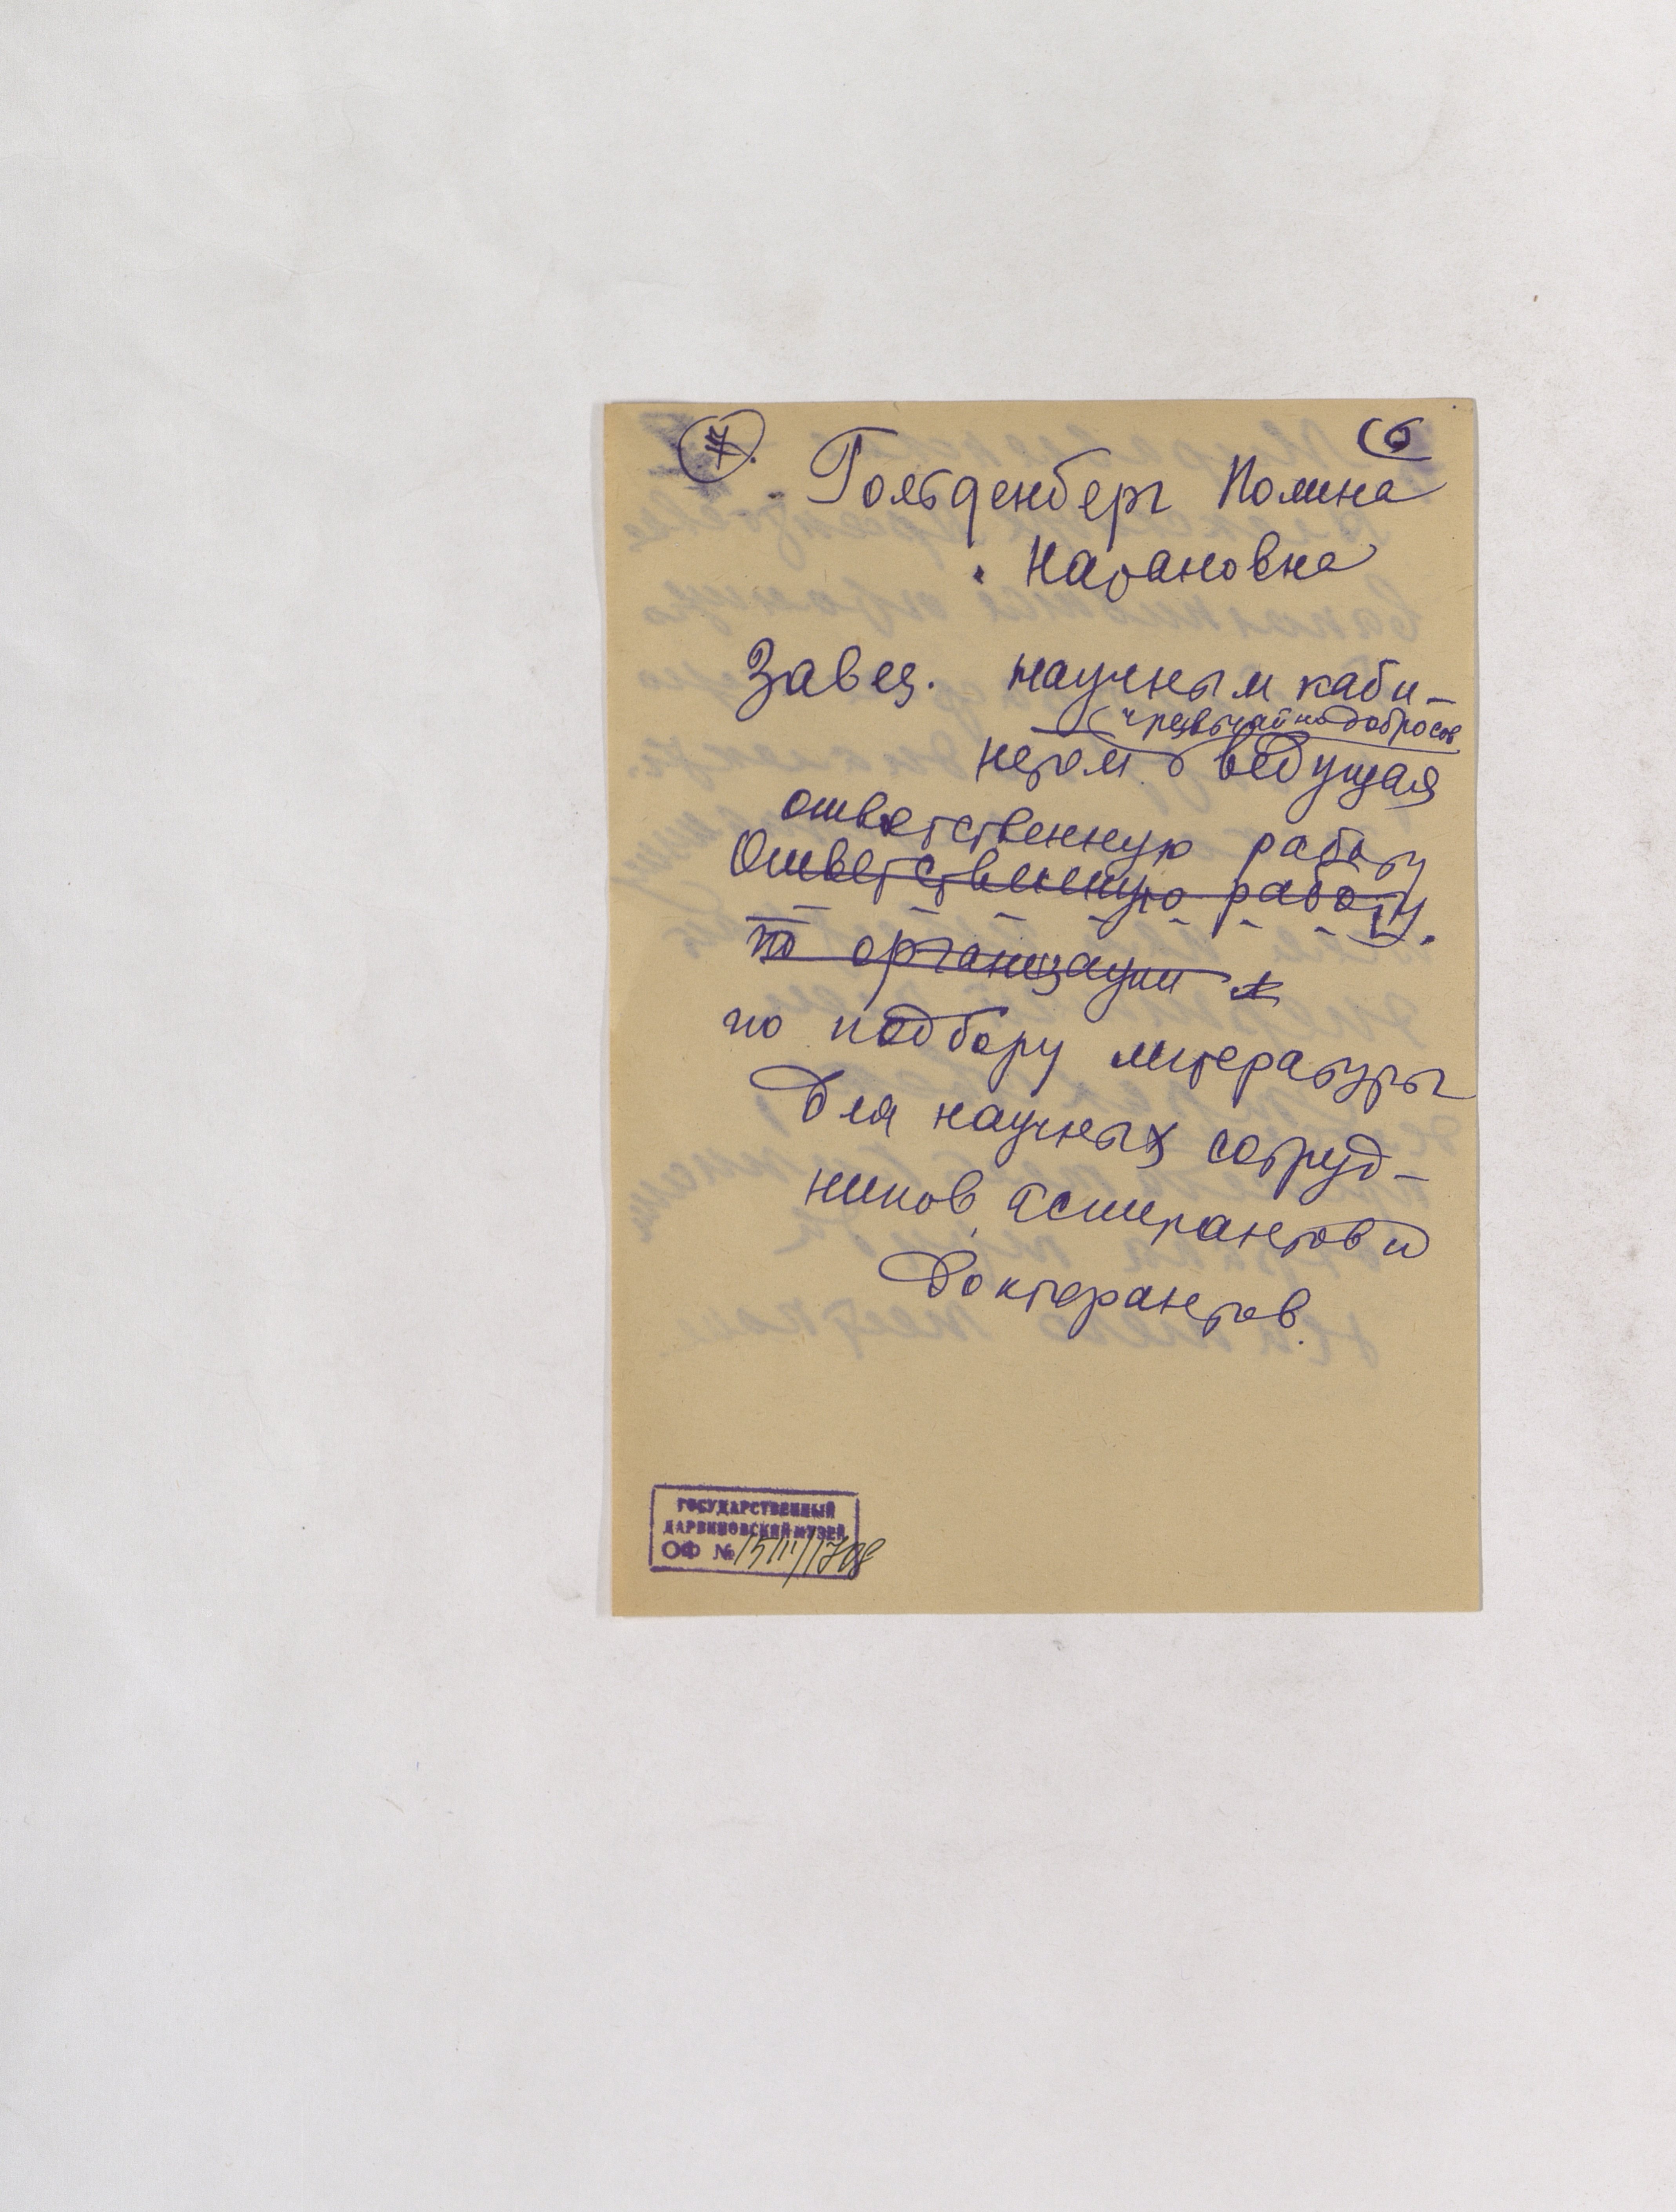 7.
6
Гольденберг Полина
Натановна
Завед. научным каби-
чрезвычайно добросов
нетом ведущая
ответственную работу
Ответственную работу.
по организации
по подбору литературы
для научных сотруд-
ников, аспирантов и
докторантов.
ГОСУДАРСТВЕННЫЙ
ДАРВИНОВСКИЙ МУЗЕЙ
ОФ №